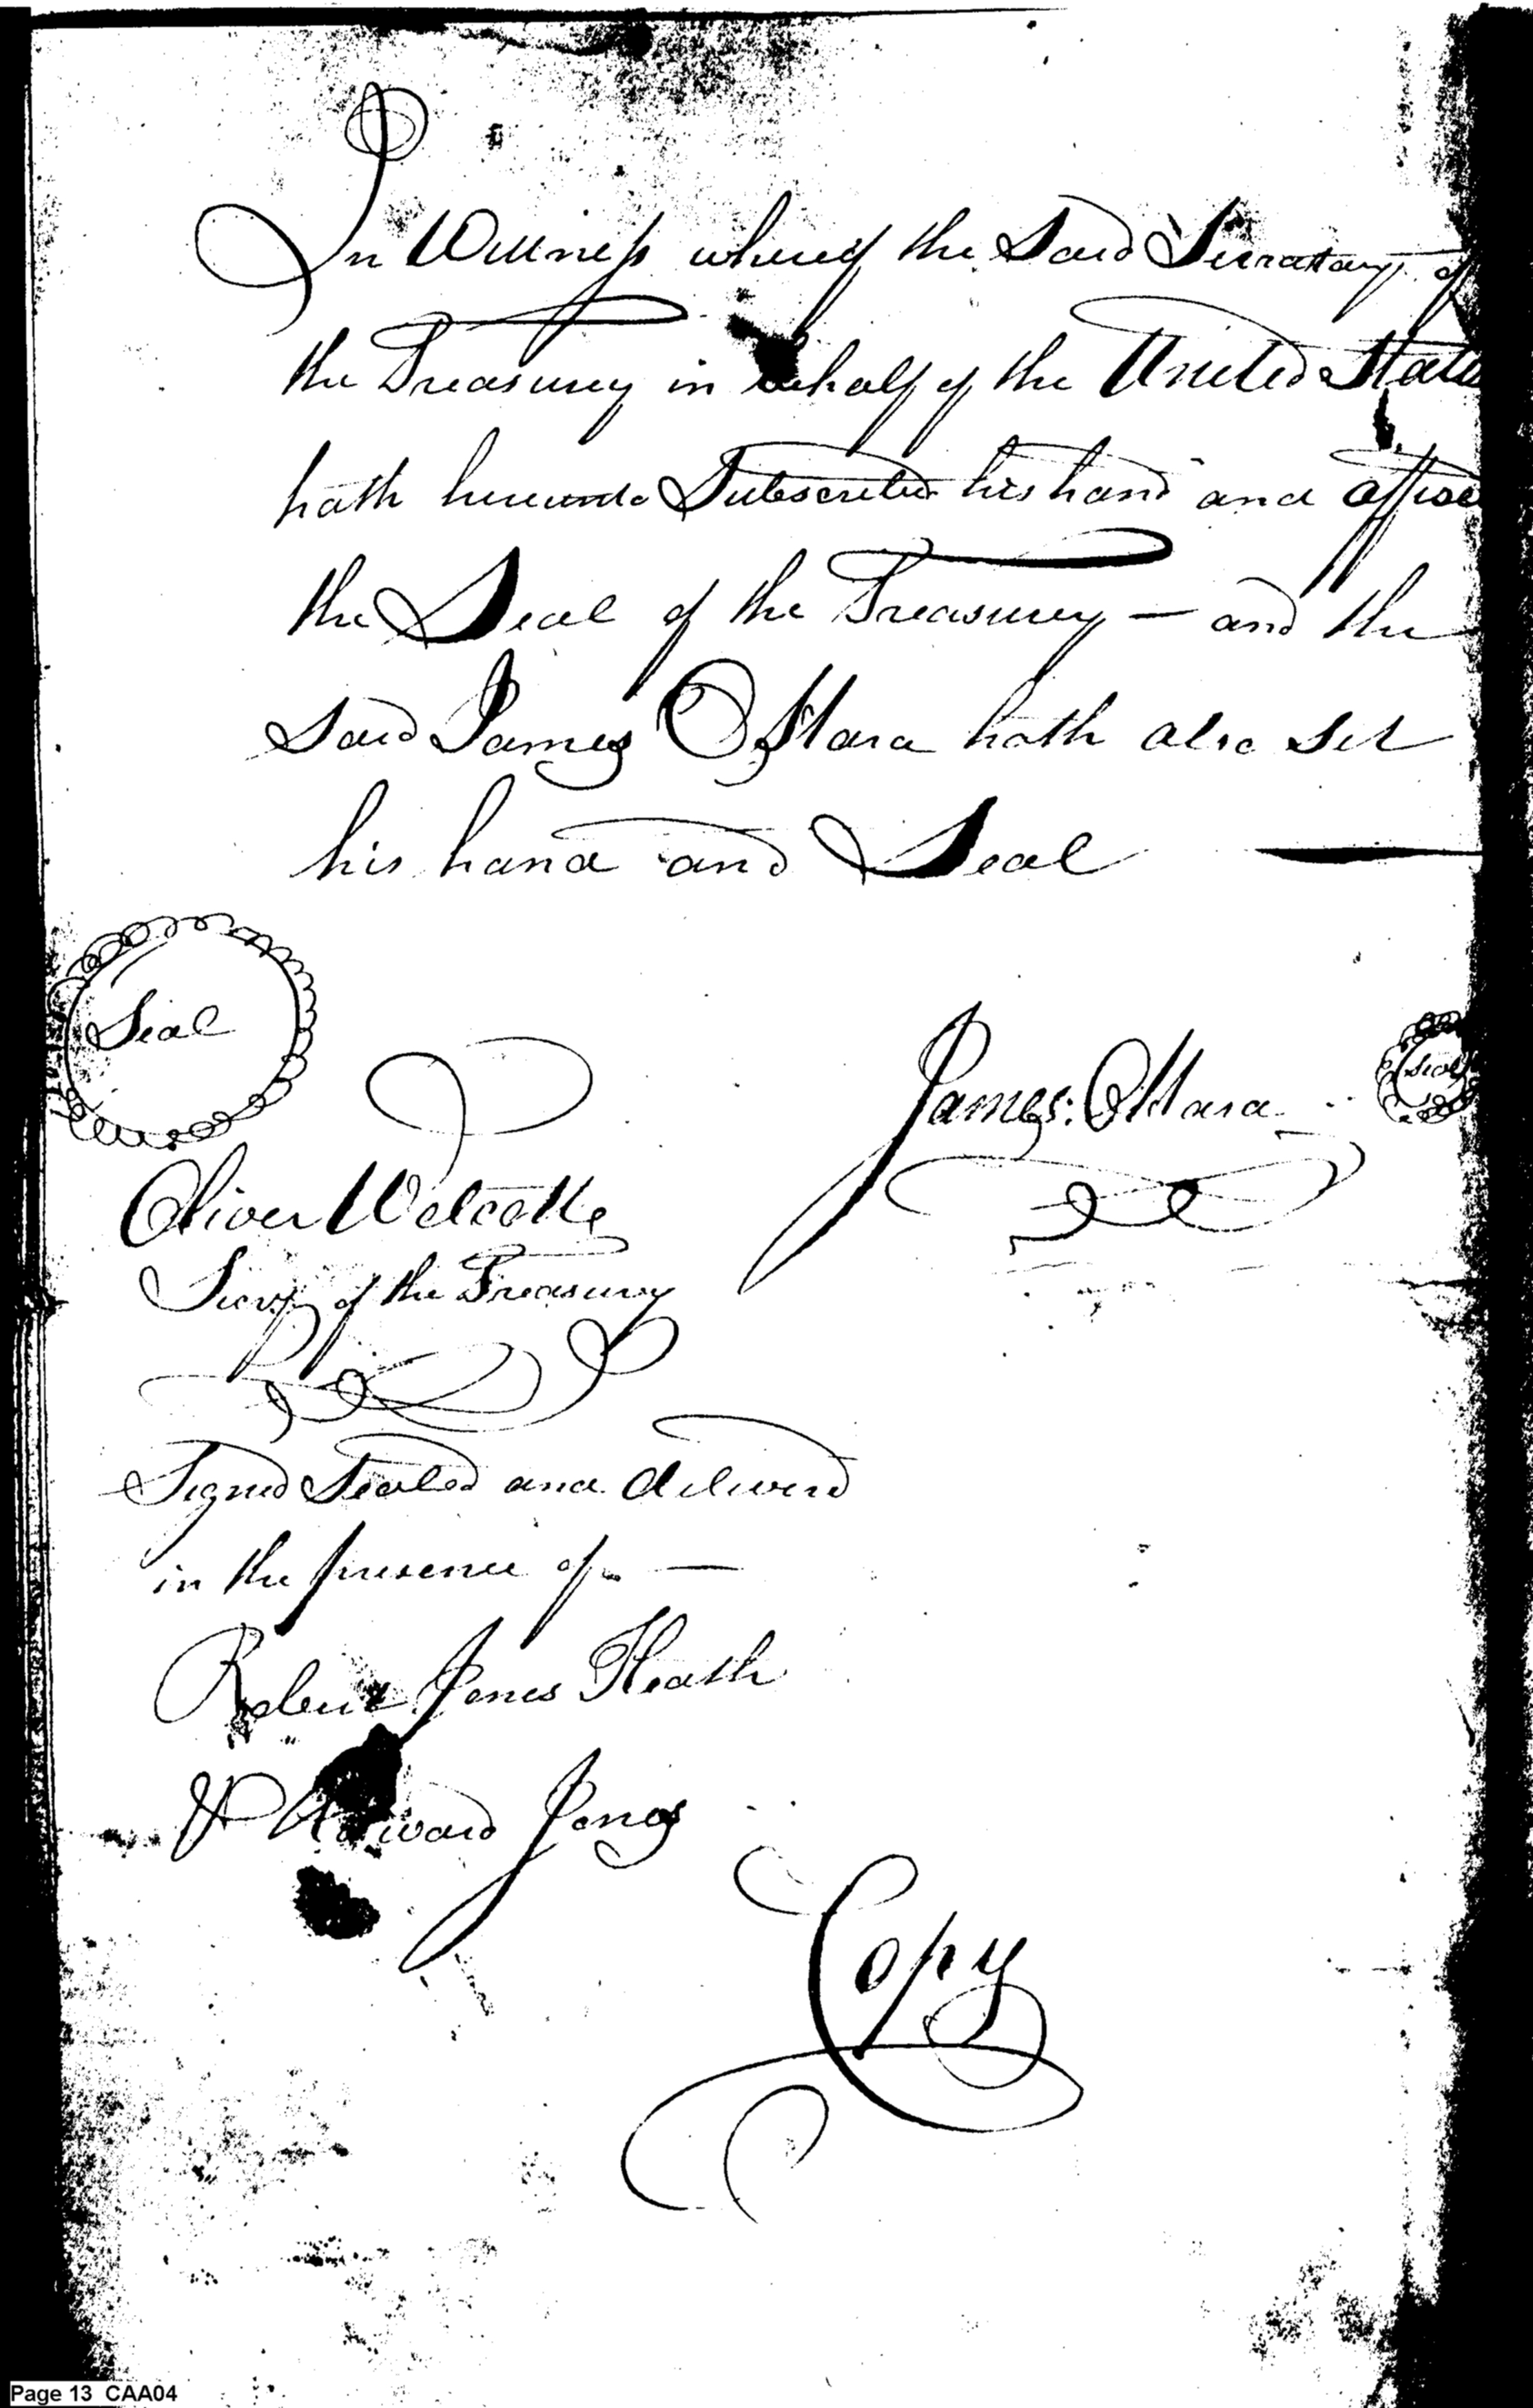 In Witness whereof the Said Secratary of
the Treasury in behalf of the United States
hath hereunto Subscribed his hand and affixed
the Seal of the Treasury — and the
Said James OHara hath also Set
his hand and Seal
Seal
James OHara
Seal
Oliver Wolcott
Secry of the Treasury
Signed Sealed and delivered
in the presence of —
Robert Jones Heath
Edward Jones
Copy
Page 13 CAA04